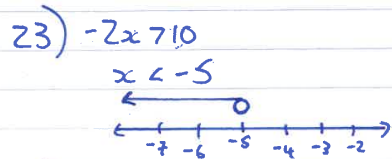 23) -2x > 10
x < -5
-7 -6 -5 -4 -3 -2